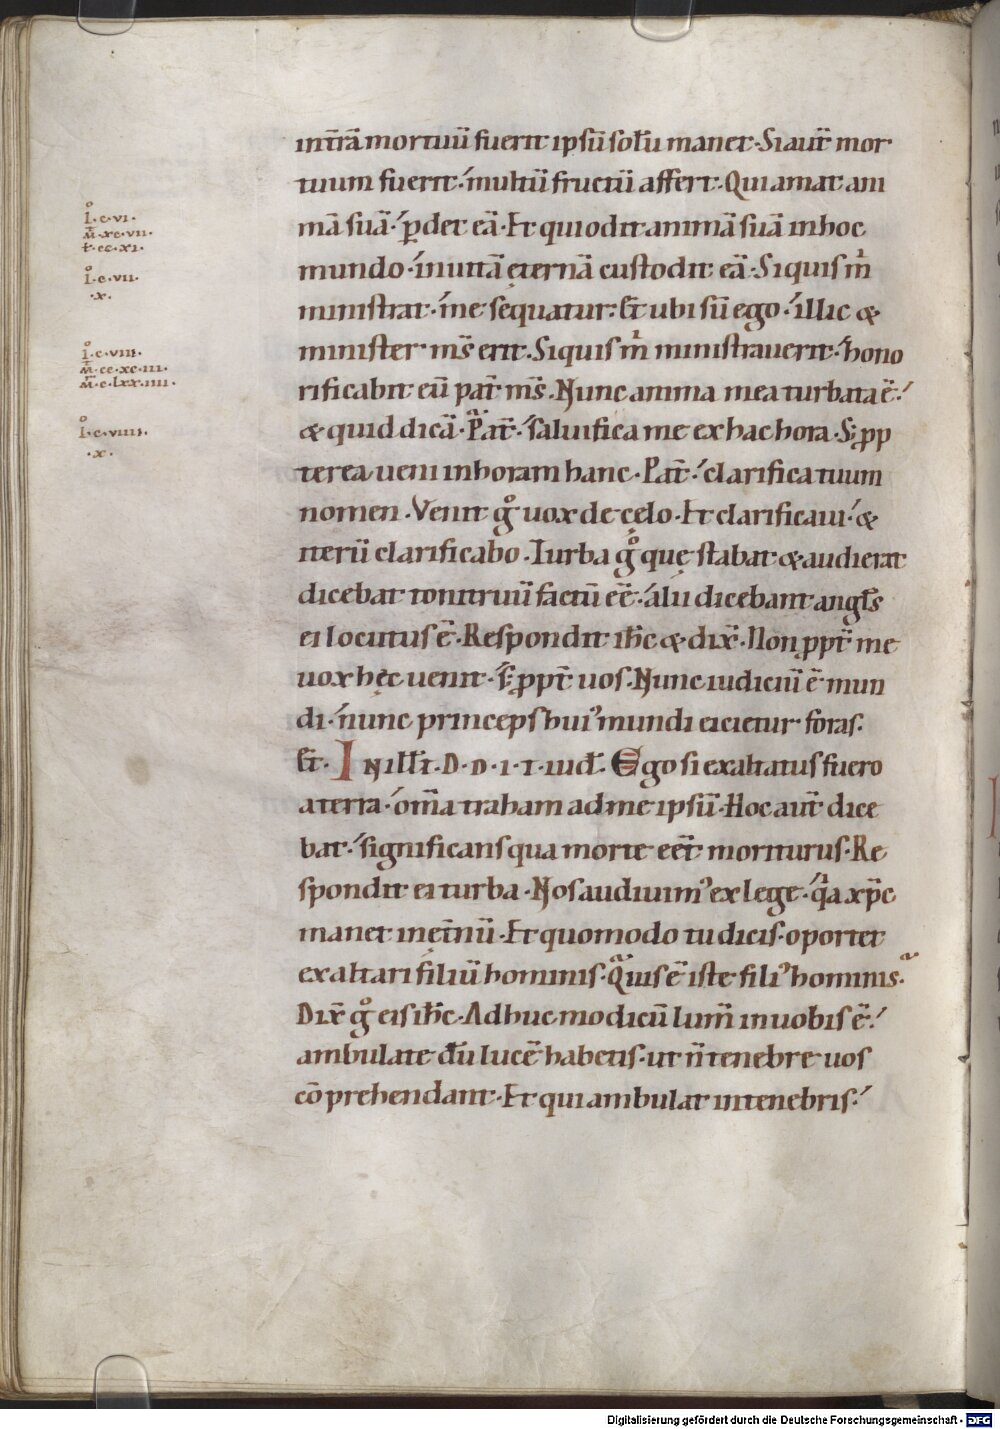 int̄rā mortuū fuerit ipsū solū manet·Si aut̄ mor
tuum fuerit·́multū fructū affert·Qui amat ani
mā suā·́p̱det eā·Et qui odit animā suā in hoc
mundo·́in uitā ęternā custodit eā·Si quis m̍
ministrat·́me sequatur:Et ubi sū ego·́illic &
minister m̄s erit·Si quis m̍ ministrauerit·́hono
rificabit eū pat̄ m̄s·Nunc anima mea turbata ē·́
& quid dicā·Pat̄·́saluifica me ex hac hora·S; ꝓp
terea ueni in horam hanc·Pat̄·́clarifica tuum
nomen·Venit gͦ uox de cęlo·Et clarificaui·́&
iterū clarificabo·Turba gͦ quę stabat & audierat
dicebat tonitruū factū eē·́alii dicebant angl̄s
ei locutus ē·Respondit ih̄c & dix̄·Non ꝓpt̄ me
uox hęc uenit·́s; ꝓpt̄ uos·Nunc iudiciū ē mun
di·́nunc princeps hui᾽ mundi eicietur foras·
Et·IN ill̄t·D·n·i·t·iud̄·Ego si exaltatus fuero
a terra·́om̄a traham ad me ipsū·Hoc aut̄ dice
bat·́significans qua morte eēt moriturus·Re
spondit ei turba·Nos audiuim᾽ ex lege·́qͥa xp̄c
manet in ęt̄nū·Et quomodo tu dicis·oportet
exaltari filiū hominis·Quis ē iste fili᾽ hominis·
Dix̄ gͦ eis ih̄c·Adhuc modicū lum̄ in uobis ē·́
ambulate dū lucē habetis·ut n̄ tenebre uos
cō prehendant·Et qui ambulat in tenebris·́
Iͦ·c·vi·
m̄·xc·vii·
t·cc·xi·
Iͦ·c·vii·
·x·
Iͦ·c·viii·
m̄·cc·xc·iii·
m̄·c·lxx·iiii·
Iͦ·c·viiii·
·x·
Digitalisierung gefördert durch die Deutsche Forschungsgemeinschaft - DFG